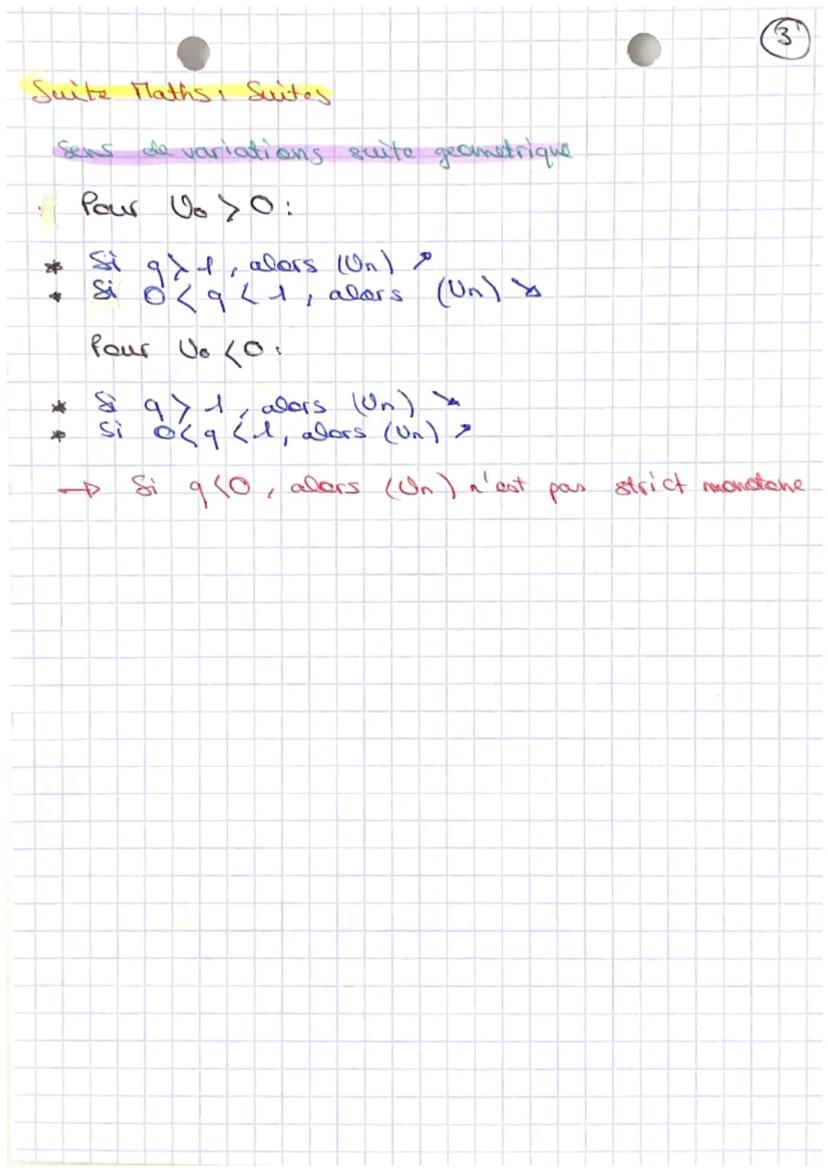 3
Suite Maths : Suites
Sens de variations suite geometrique
Pour U₀ > 0 :
* Si q > 1, alors (Un) ↗
* Si 0 < q < 1, alors (Un) ↘
Pour U₀ < 0 :
* Si q > 1, alors (Un) ↘
* Si 0 < q < 1, alors (Un) ↗
→ Si q < 0, alors (Un) n'est pas strict monotone